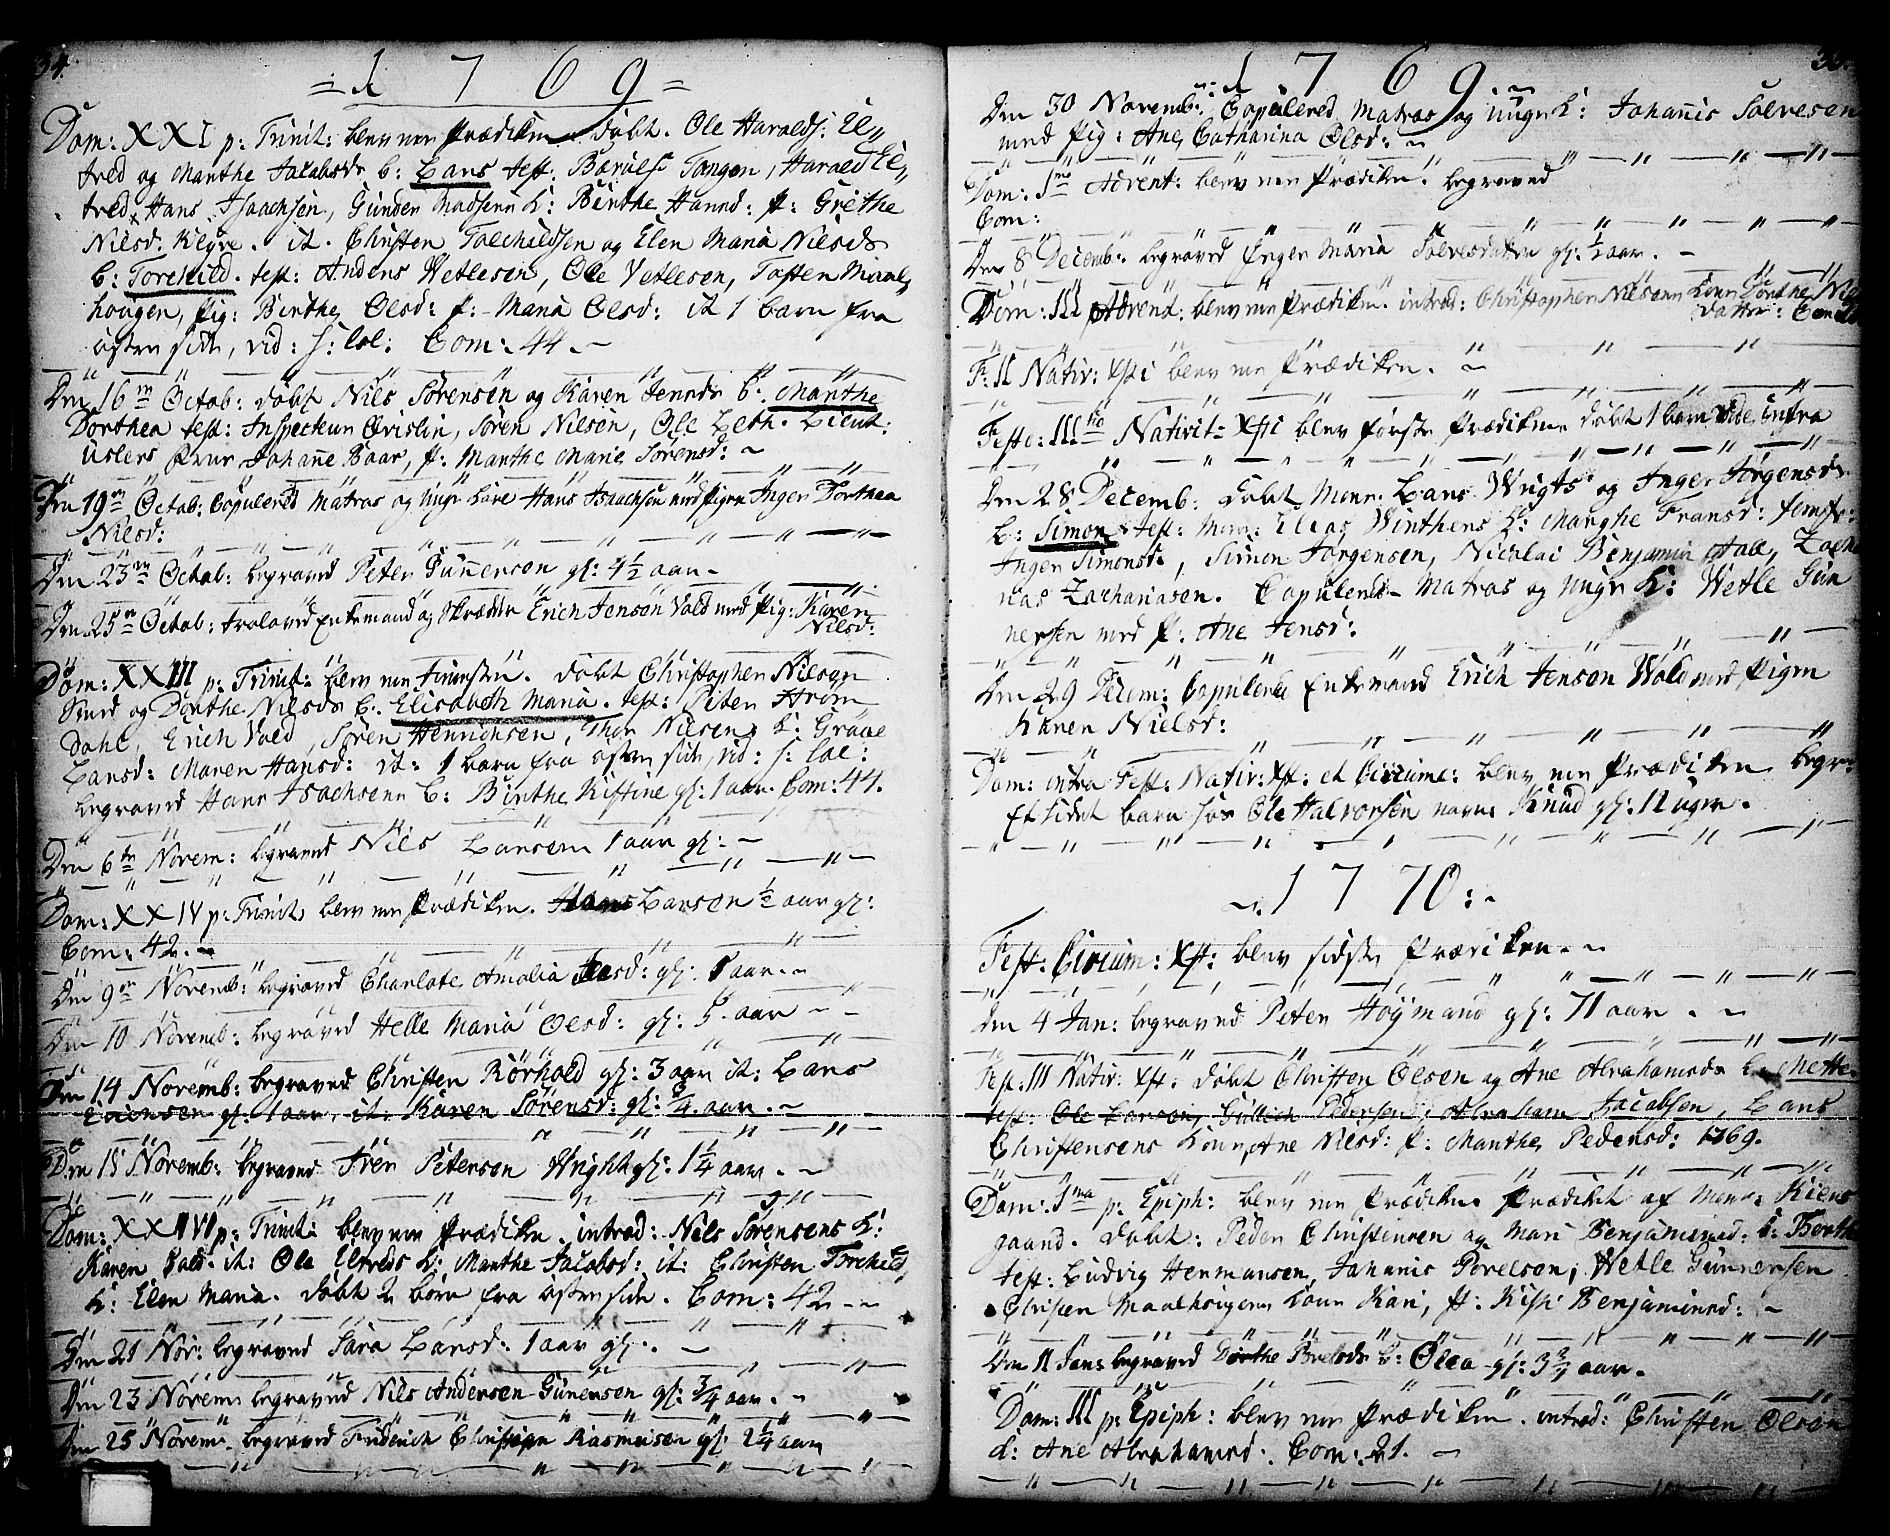 34.
= 1 7 6 9 =
Dom: XXI p: Trinit: blev een Prædiken. Døbt. Ole Haralds: El„
tred og Manthe Jacobsdr b: Lars test. Baruls: Tangen, Harald El„
tred, Hans Isaachsen, Gunder Madsens K: Birthe Hansd: P: Grethe
Nilsd: Kløve. it. Christen Torchildsen og Elen Maria Nilsdr
b: Torchild. test: Anders Wetlesen, Ole Vetlesen, Tosten Maal„
hougen, Pig: Birthe Olsd: P: Maria Olsd: it 1 barn fra
østre side, vid: s: lol: Com: 44.
Den 16de Octob: døbt Nils Sørensen og Karen Jensdr b: Manthe
Dorthea test: Inspecteur Qvislin, Søren Nilsen, Ole Leth. Lieut:
Uslers Frue Johane Baar, P: Manthe Marie Sørensd:
Den 19de Octob: Copulered Matros og Ungkare Hans Isaachsen med Pigen Inger Dorthea
Nilsd:
Den 23de Octob: begraved Peter Gunnerson gl: 4½ aar
Den 25de Octob: trolovd Enkemand og Skræder Erich Jensen Vold med Pig: Karen
Nilsd:
Dom: XXIII p: Trinit: blev een Tieneste. Døbt Christopher Nilsen
Smed og Dorthe Nilsdr b: Elisabeth Maria. test: Peter Strøm
Dahl, Erich Vold, Søren Henrichsen, Thor Nilsens K: Groue
Larsd: Maren Hansd: it: 1 barn fra østre side, vid: s: lol:
begraved Hans Isachsens b: Birthe Kistine gl: 1 aar. Com: 44.
Den 6te Novem: begraved Nils Larsem 1 aar gl:
Dom: XXIV p: Trinit: blev een Prædiken. Larson ½ aar gl:
Com: 42.
Den 9de Novemb: begraved Charlote Amalia gl: 1 aar.
Den 10 Novemb: begraved Helle Maria Olsd: gl: 5 aar
Den 14 Novemb: begraved Christen Rørhold gl: 3 aar it: Lars
gl: 1 aar, it: Karen Sørensd: gl: ¾ aar.
Den 15 Novemb: begraved Iver Peterson Wright gl: 1¼ aar.
Dom: XXVI p: Trinit: blev een Prædiken. introd: Nils Sørensens K:
Karen it: Ole Eltreds K: Manthe Jacobsd: it: Christen Torchild
K: Elen Maria. døbt 2 børn fra østre side. Com: 42
Den 21 Nov: begraved Sara Larsd: 1 aar gl.
Den 23 Novem: begraved Nils Andersen Gunersen gl: ¾ aar.
Den 25 Novem: begraved Friderich Christian Rasmusen gl: 2¼ aar
1 7 6 9.
Den 30 Novemb: Copulered Matros og ungk: Johanis Solvesen
med Pig: Ane Catharina Olsd:
Dom: 1ma Advent: blev een Prædiken. begraved
Com:
Den 8 Decemb: begraved Inger Maria Solvesdatter gl: ½ aar.
Dom: III Advent: blev een Prædiken. introd: Christopher Nilsens kone Dorthe Nils
datter: Com
F: II Nativ: Xsti blev een Prædiken.
Festo: III tio Nativit: Xsti blev første Prædiken døbt 1 barn vide infra
Den 28 Decemb: døbt Mons: Lars Wrigts og Inger Jørgensdr
b: Simon test: Mons: Elias Winthers K: Marghe Fransd: Jomfr:
Inger Simonsdr, Simon Jørgensen, Nicolai Benjamin Aall, Zacha
rias Zachariasen. Copulered Matros og Ungk: Wetle Gun
nersen med P: Ane Jensd:
Den 29 Decem: Copulered Enkemand Erich Jenson Wold med Pigen
Karen Nielsd:
Dom: intra Fest: Nativ: Xst: et Circumc: blev een Prædiken begra:
Et lidet barn hos Ole Halvorsen navn: Knud gl: 11 uger.
1770:
Fest: Circum: Xst: blev sidste Prædiken.
Den 4 Jan: begraved Peter Høymand gl: 71 aar.
Fest: III Nativ: Xst: døbt Christen Olsen og Ane Abrahamsdr b: Mette
test: Ole Larson, Gullich Pedersen, Abraham Jacobsen, Lars
Christensens kone, Ane Nilsd: P: Manthe Pedersd: 1769.
Dom: 1ma p: Epiph: blev een Prædiken Prædiket af Mons: Kiers
gaard. Døbt: Peder Christensen og Mari Benjaminsd: b: Berthe
test: Ludvig Hermansen, Johanis Porelson, Wetle Gunnersen
Christen Maalhougens kone Kari, P: Kisti Benjaminsd:
Den 11 Jan: begraved Dorthe Porelsdr b: Olea gl: 3¾ aar.
Dom: III p: Epiph: blev een Prædiken. introd: Christen Olson
K: Ane Abrahamsd: Com: 21.